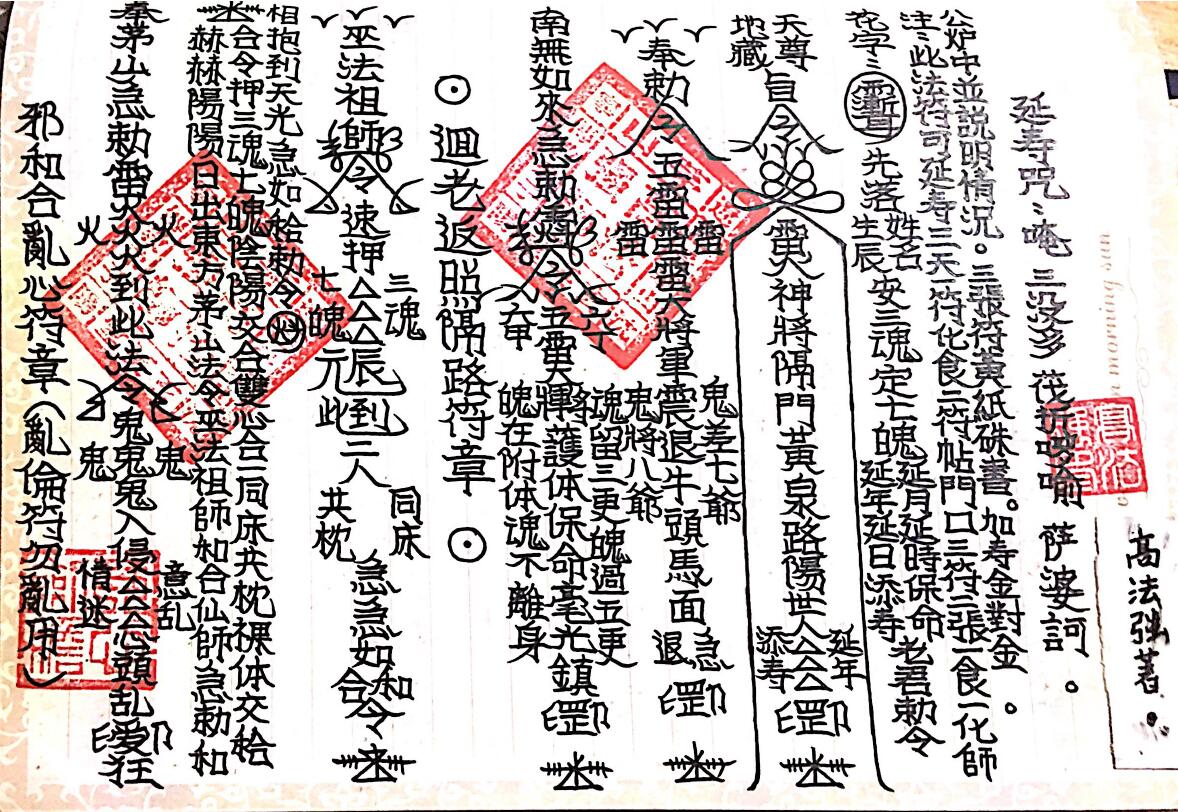 高法強著。
延寿咒：唵 三没多 萨婆訶。
公炉中並説明情况。三張符黃紙硃書。加寿金對金。
注：此法符可延寿三天一符化食二符帖門口三符三張一食一化師
花字：先落姓名生辰安三魂定七魄延年延月延日延時保命添寿老君勅令
天尊地藏自令雷火神將隔門黃泉路陽世人厶厶厶延年添寿罡印
奉勅令五雷雷雷雷雷火將軍震退牛頭馬面鬼差七爺鬼將八爺急退罡印
南無如來急勅令五雷火將軍護体保命毫光鎮罡印
六丁六甲魂留三更魄過五更魄在附体魂不離身
⊙迴老返照隔路符章⊙
巫法祖師令速押厶厶厶辰到三人急急如令
三魂七魄元此同床共枕和合
相抱到天光急如給勅令
合令押三魂七魄陰陽交合雙恋合一同床共枕裸体交給
赫赫陽陽日出東方茅山法令巫法祖師和合仙師急勅和
奉茅山急勅雷火火火到此法令鬼鬼鬼入侵厶厶厶心頭乱愛狂
火火鬼鬼意乱情迷印
邪和合亂心符章（亂倫符勿亂用）
morning sun